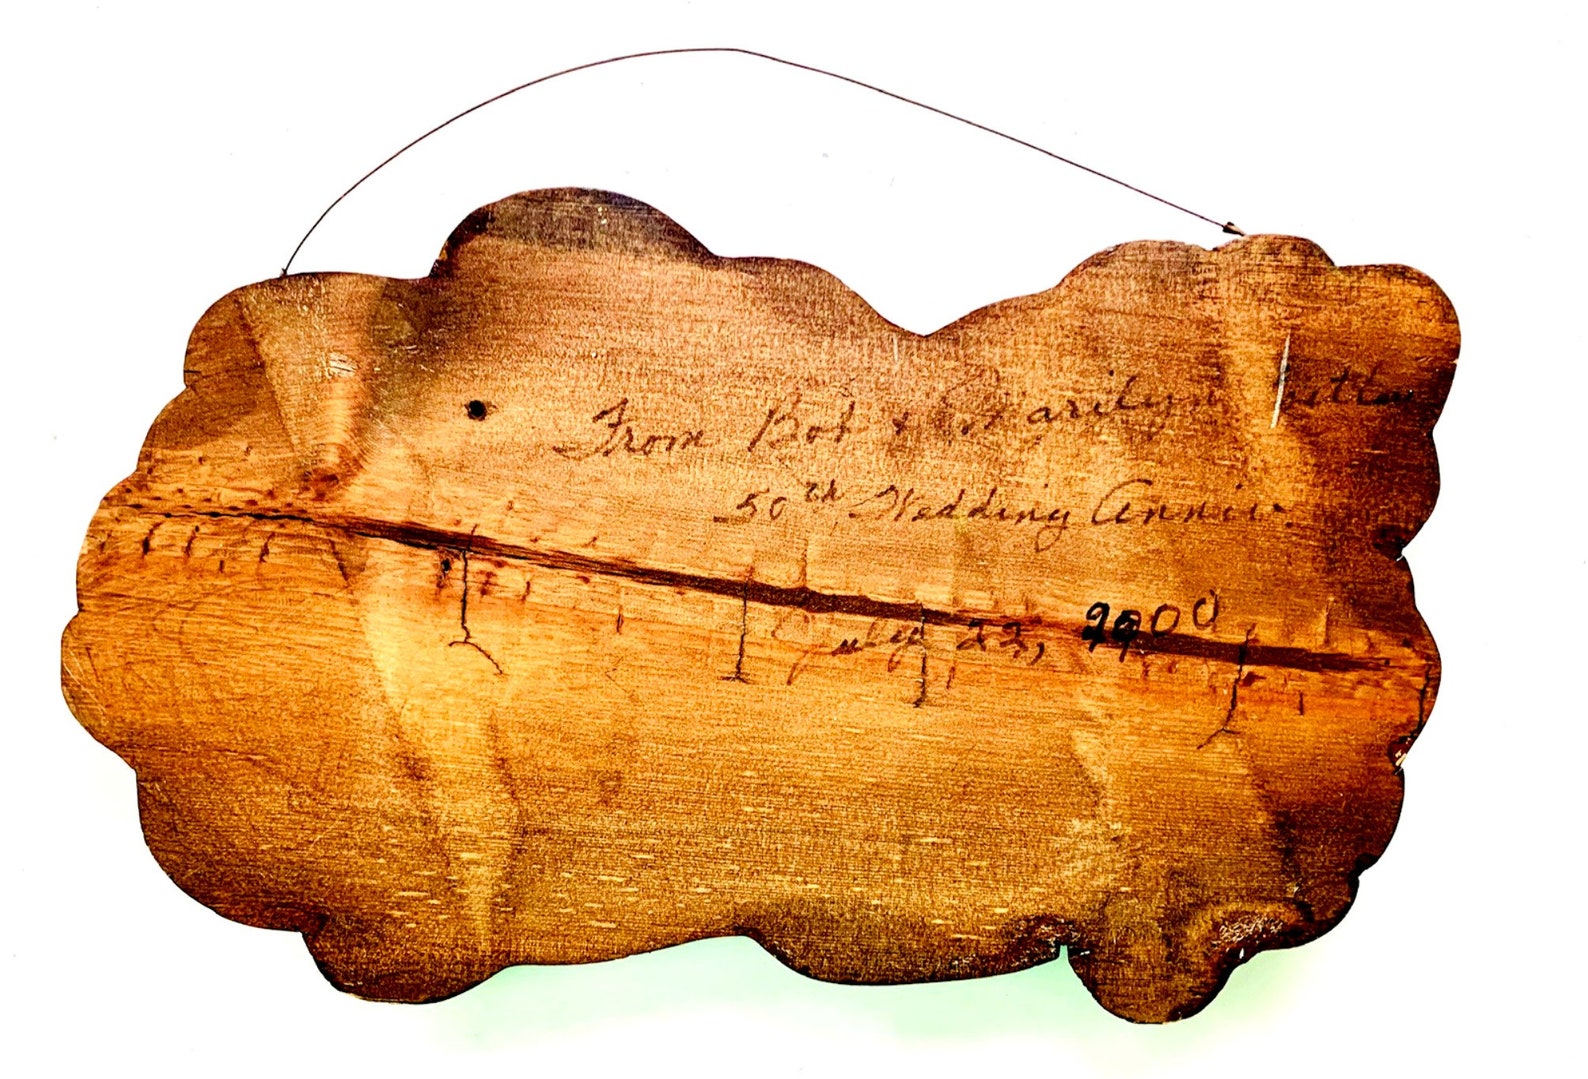 From Bob & Marilyn
50th Wedding Anniv.
July 22, 2000